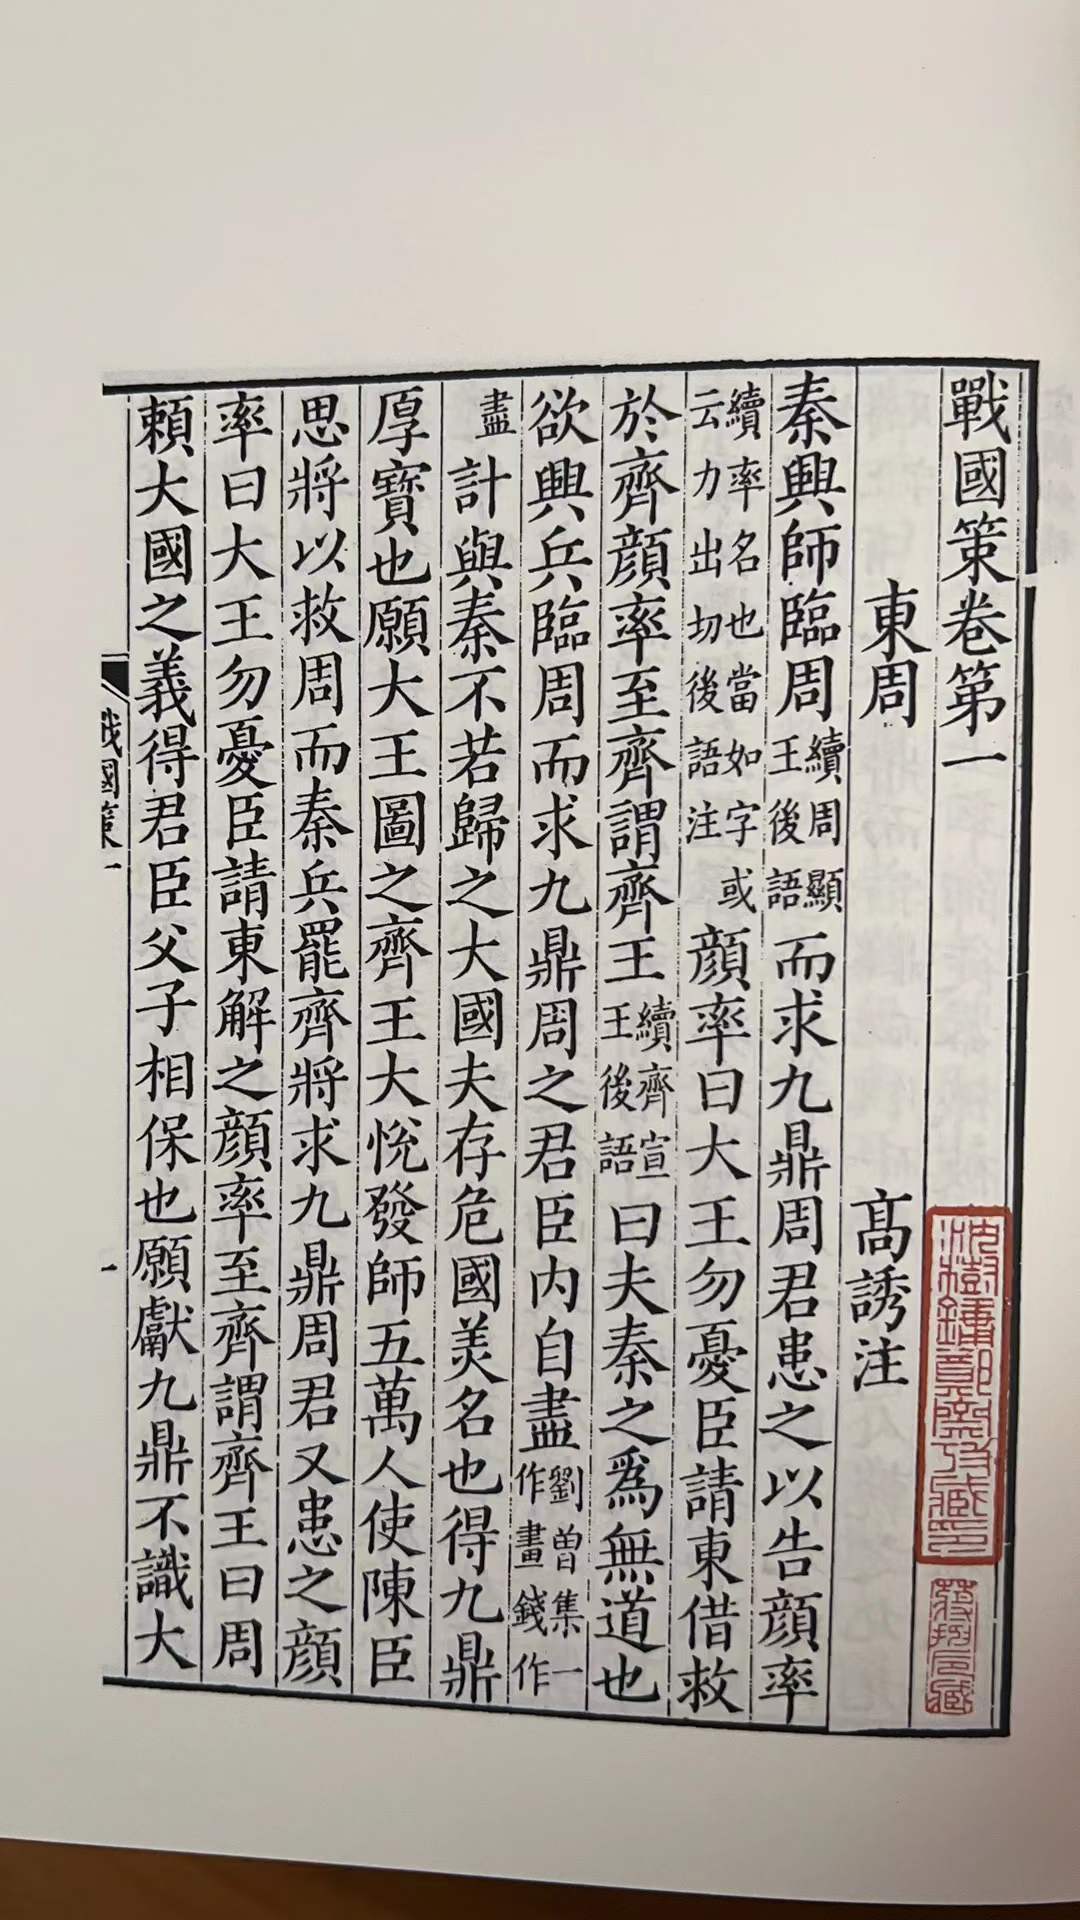 戰國策卷第一
東周 高誘注
秦興師臨周續周顯王後語而求九鼎周君患之以告顔率
續率名也當如字或云力出切後語注顔率曰大王勿憂臣請東借救
於齊顔率至齊謂齊王續齊宣王後語曰夫秦之爲無道也
欲興兵臨周而求九鼎周之君臣内自盡劉曽集一作畫錢作
盡計與秦不若歸之大國夫存危國美名也得九鼎
厚寳也願大王圖之齊王大悅發師五萬人使陳臣
思將以救周而秦兵罷齊將求九鼎周君又患之顔
率曰大王勿憂臣請東解之顔率至齊謂齊王曰周
頼大國之義得君臣父子相保也願獻九鼎不識大
戰國策一
一